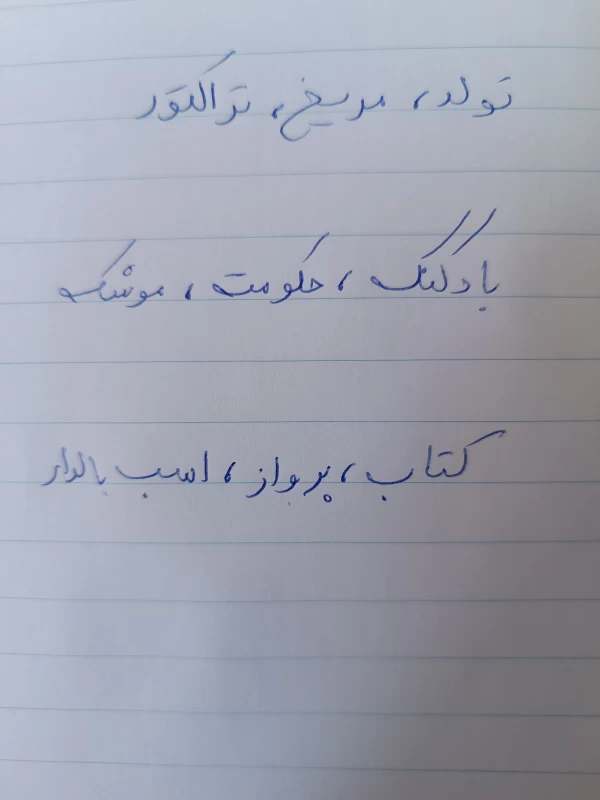 تولد، مریخ، تراکتور
بادکنک، حکومت، موشک
کتاب، پرواز، اسب بالدار